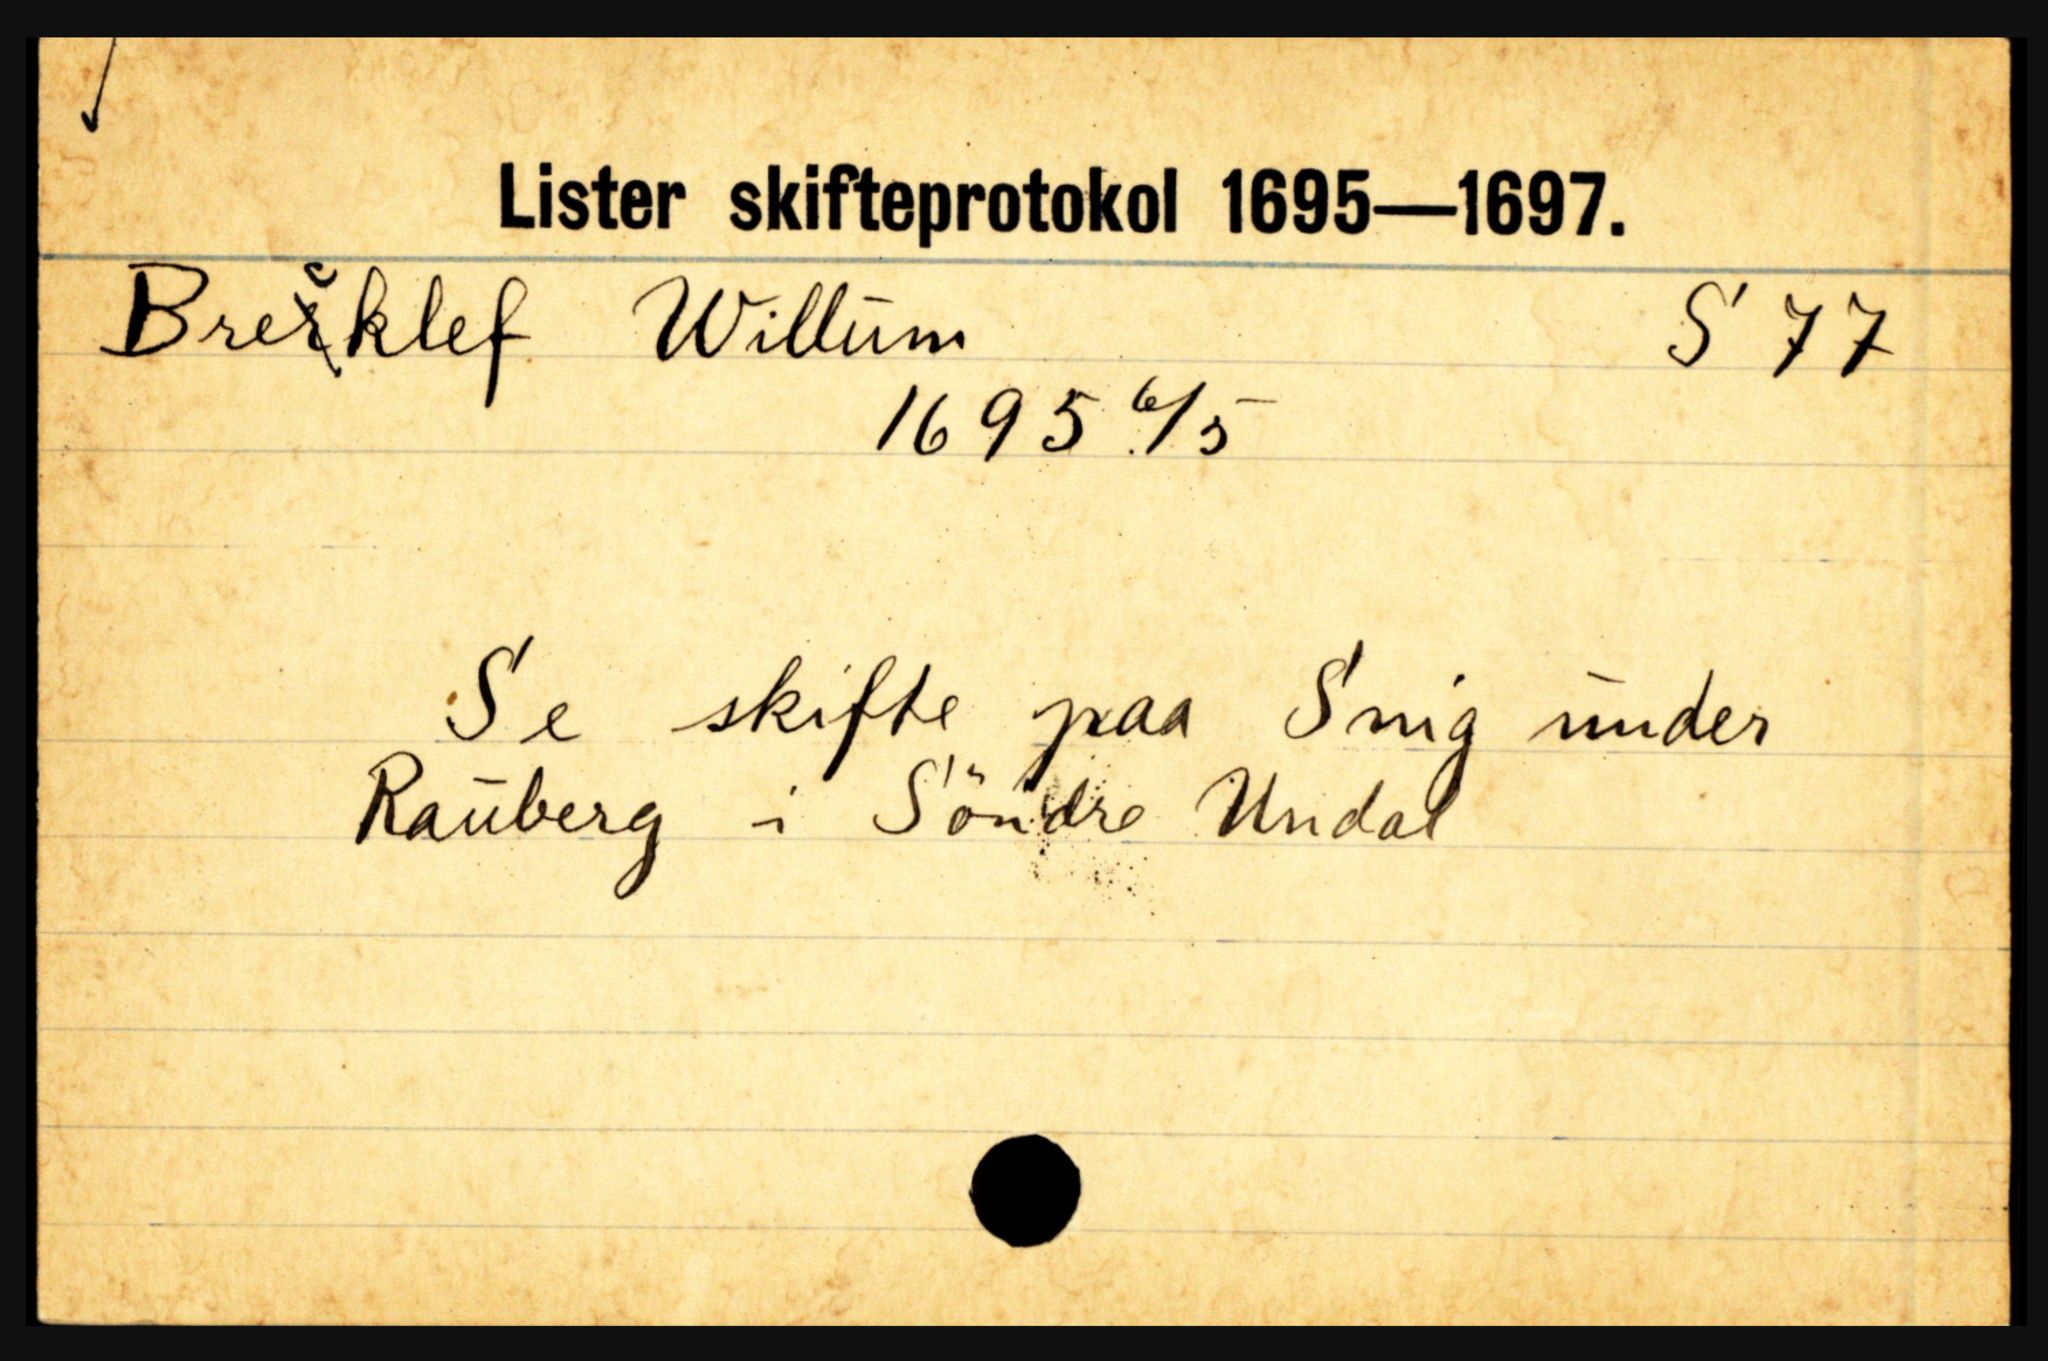 Lister skifteprotokol 1695—1697.
Brecklef Willum S 77
1695 6/5
Se skifte paa Snig under
Rauberg i Söndre Undal